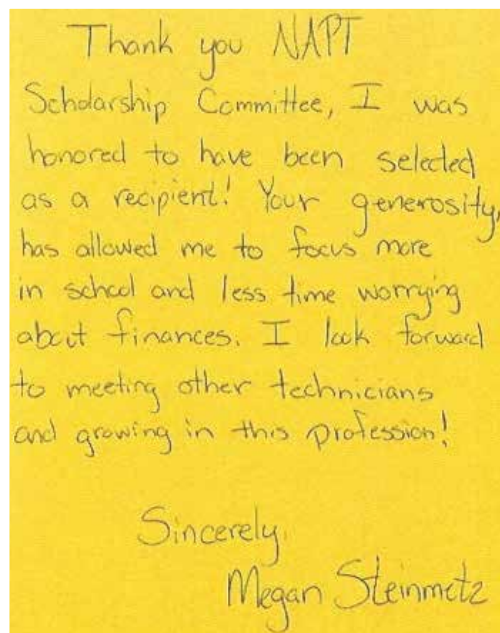 Thank you NAPT
Scholarship Committee, I was
honored to have been selected
as a recipient! Your generosity,
has allowed me to focus more
in school and less time worrying
about finances. I look forward
to meeting other technicians
and growing in this profession!
Sincerely,
Megan Steinmetz